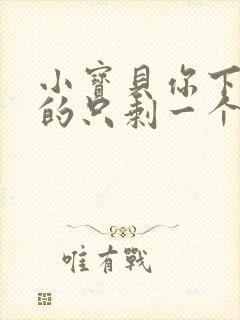 小寳貝你下
的只剩一个
唯有戰